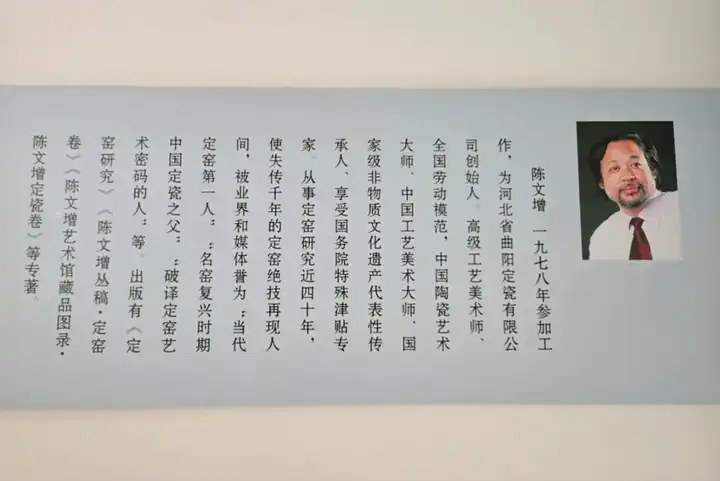 陈文增 一九七八年参加工
作，为河北省曲阳定瓷有限公
司创始人。高级工艺美术师、
全国劳动模范，中国陶瓷艺术
大师、中国工艺美术大师、国
家级非物质文化遗产代表性传
承人、享受国务院特殊津贴专
家。从事定窑研究近四十年，
使失传千年的定窑绝技再现人
间，被业界和媒体誉为“当代
定窑第一人”“名窑复兴时期
中国定瓷之父”“破译定窑艺
术密码的人”等。出版有《定
窑研究》《陈文增丛稿·定窑
卷》《陈文增艺术馆藏品图录·
陈文增定瓷卷》等专著。